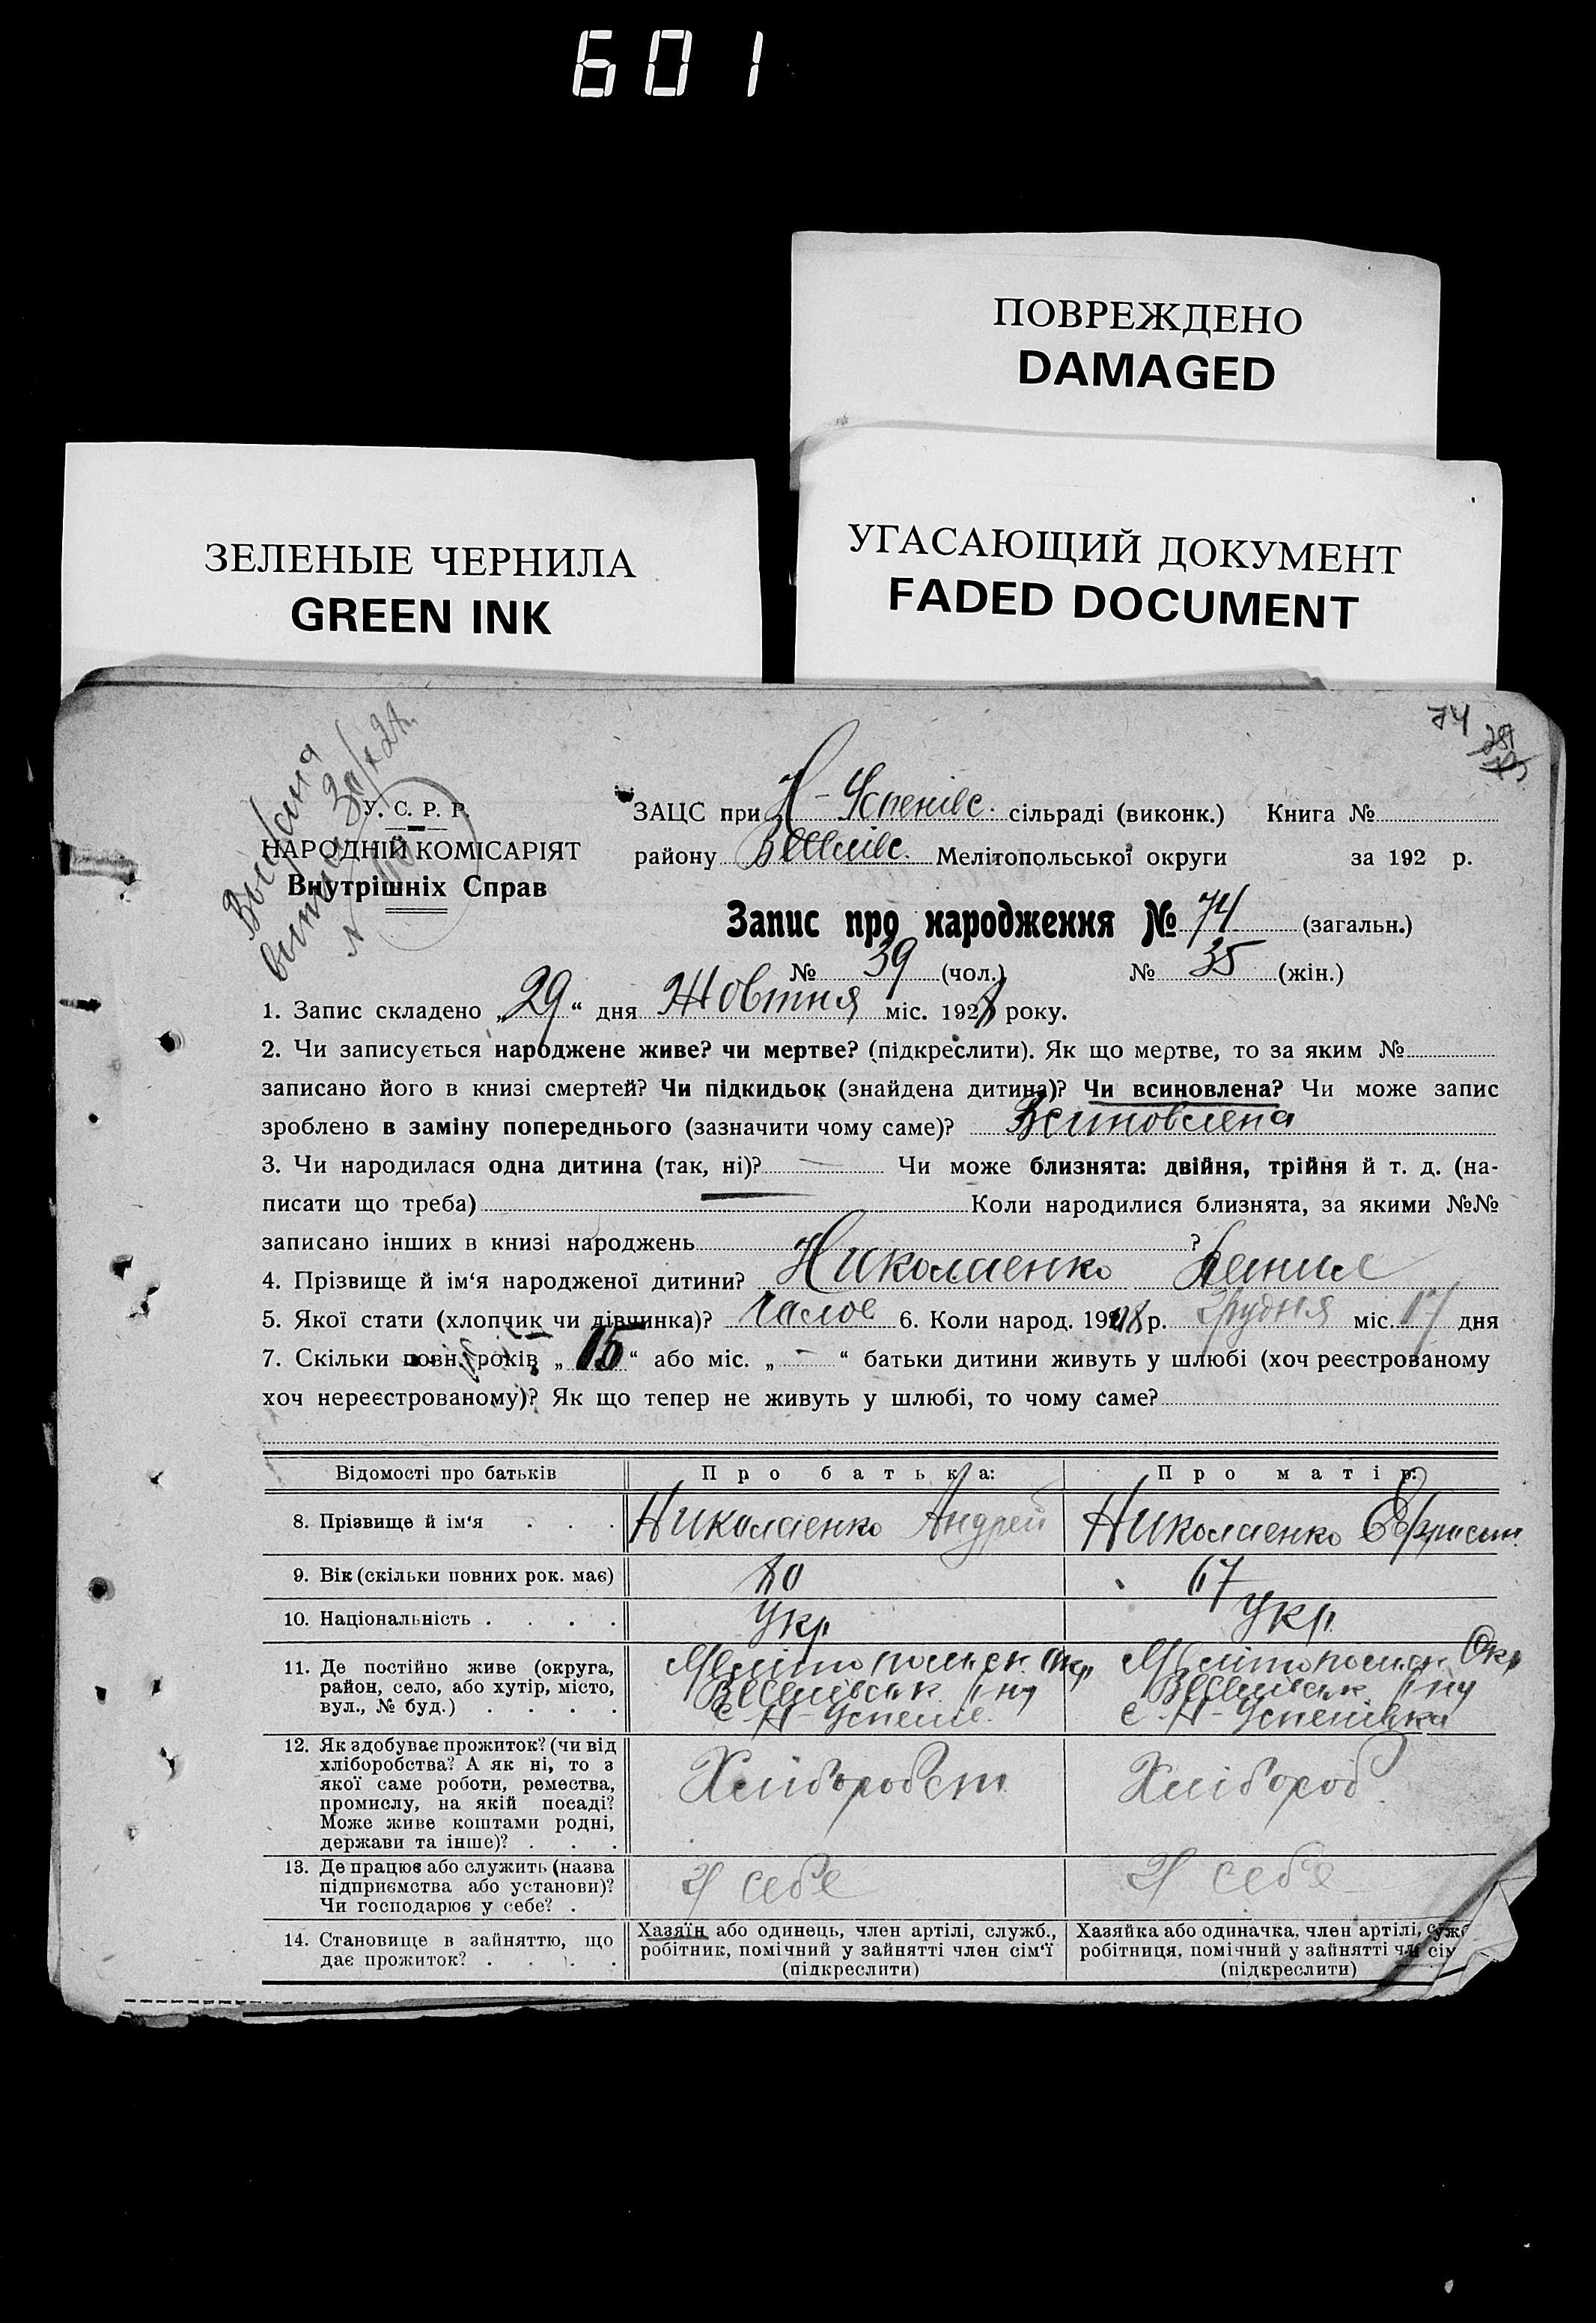 601
ПОВРЕЖДЕНО
DAMAGED
ЗЕЛЕНЫЕ ЧЕРНИЛА
GREEN INK
УГАСАЮЩИЙ ДОКУМЕНТ
FADED DOCUMENT
74
У. С. Р. Р.
НАРОДНІЙ КОМІСАРІЯТ
Внутрішніх Справ
ЗАЦС при Н-Успенівс. сільраді (виконк.) Книга №
району Веселівс. Мелітопольської округи за 192 р.
Запис про народження № 74 (загальн.)
№ 39 (чол.) № 35 (жін.)
1. Запис складено „29“ дня Жовтня міс. 1928 року.
2. Чи записується народжене живе? чи мертве? (підкреслити). Як що мертве, то за яким №
записано його в книзі смертей? Чи підкидьок (знайдена дитина)? Чи всиновлена? Чи може запис
зроблено в заміну попереднього (зазначити чому саме)? Всиновлена
3. Чи народилася одна дитина (так, ні)? — Чи може близнята: двійня, трійня й т. д. (на-
писати що треба) — Коли народилися близнята, за якими №№
записано інших в книзі народжень ?
4. Прізвище й ім'я народженої дитини? Николаенко Данил
5. Якої статі (хлопчик чи дівчинка)? 6. Коли народ. 19 р. Грудня міс. 17 дня
7. Скільки повн. років „15“ або міс. „-“ батьки дитини живуть у шлюбі (хоч реєстрованому
хоч нереєстрованому)? Як що тепер не живуть у шлюбі, то чому саме?
Відомості про батьків Про батька: Про матір:
8. Прізвище й ім'я . . . Николаенко Андрей Николаенко
9. Вік (скільки повних рок. має) 80 67
10. Національність . . . . Укр Укр.
11. Де постійно живе (округа, Мелітопольск. Окр Мелітопольск Окр
район, село, або хутір, місто, Веселівськ. р-ну Веселівськ. р-ну
вул., № буд.) . . . . с. Н-Успенів. с. Н-Успенівка
12. Як здобуває прожиток? (чи від
хліборобства? А як ні, то з
якої саме роботи, ремества, Хліборобст Хлібороб.
промислу, на якій посаді?
Може живе коштами родні,
держави та інше)? . . .
13. Де працює або служить (назва
підприємства або установи)? У себе У себе
Чи господарює у себе? .
14. Становище в зайняттю, що
дає прожиток? . . . .
Хазяїн або одинець, член артілі, служб.,
робітник, помічний у зайнятті член сім'ї
(підкреслити)
Хазяйка або одиначка, член артілі,
робітниця, помічний у зайнятті
(підкреслити)